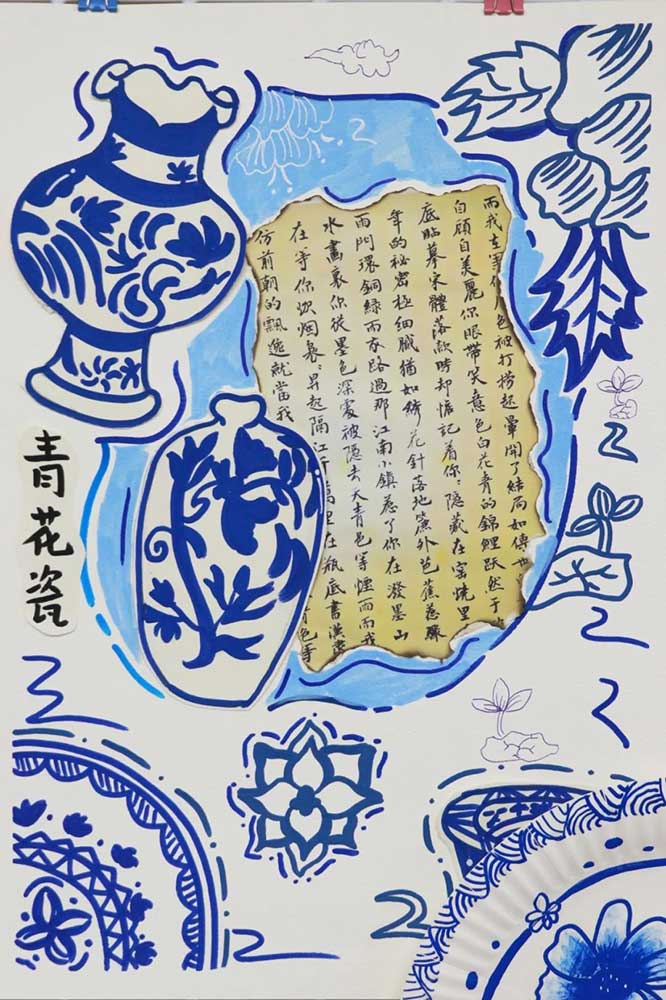 而我在 色被打捞起暈開了結局如傳世
自顧自美麗你眼帶笑意色白花青的錦鯉跃然于
底臨摹宋體落款時却惦記着你隱藏在窑燒里
年的秘密極細膩猶如綉花針落地簾外芭蕉惹驟
雨門環銅綠而我路過那江南小鎮惹了你在潑墨山
水畫裏你從墨色深處被隐去天青色等煙雨而我
在等你炊烟裊裊昇起隔江千萬里在瓶底書漢隸
仿前朝的飄逸就當我 青色等
青花瓷